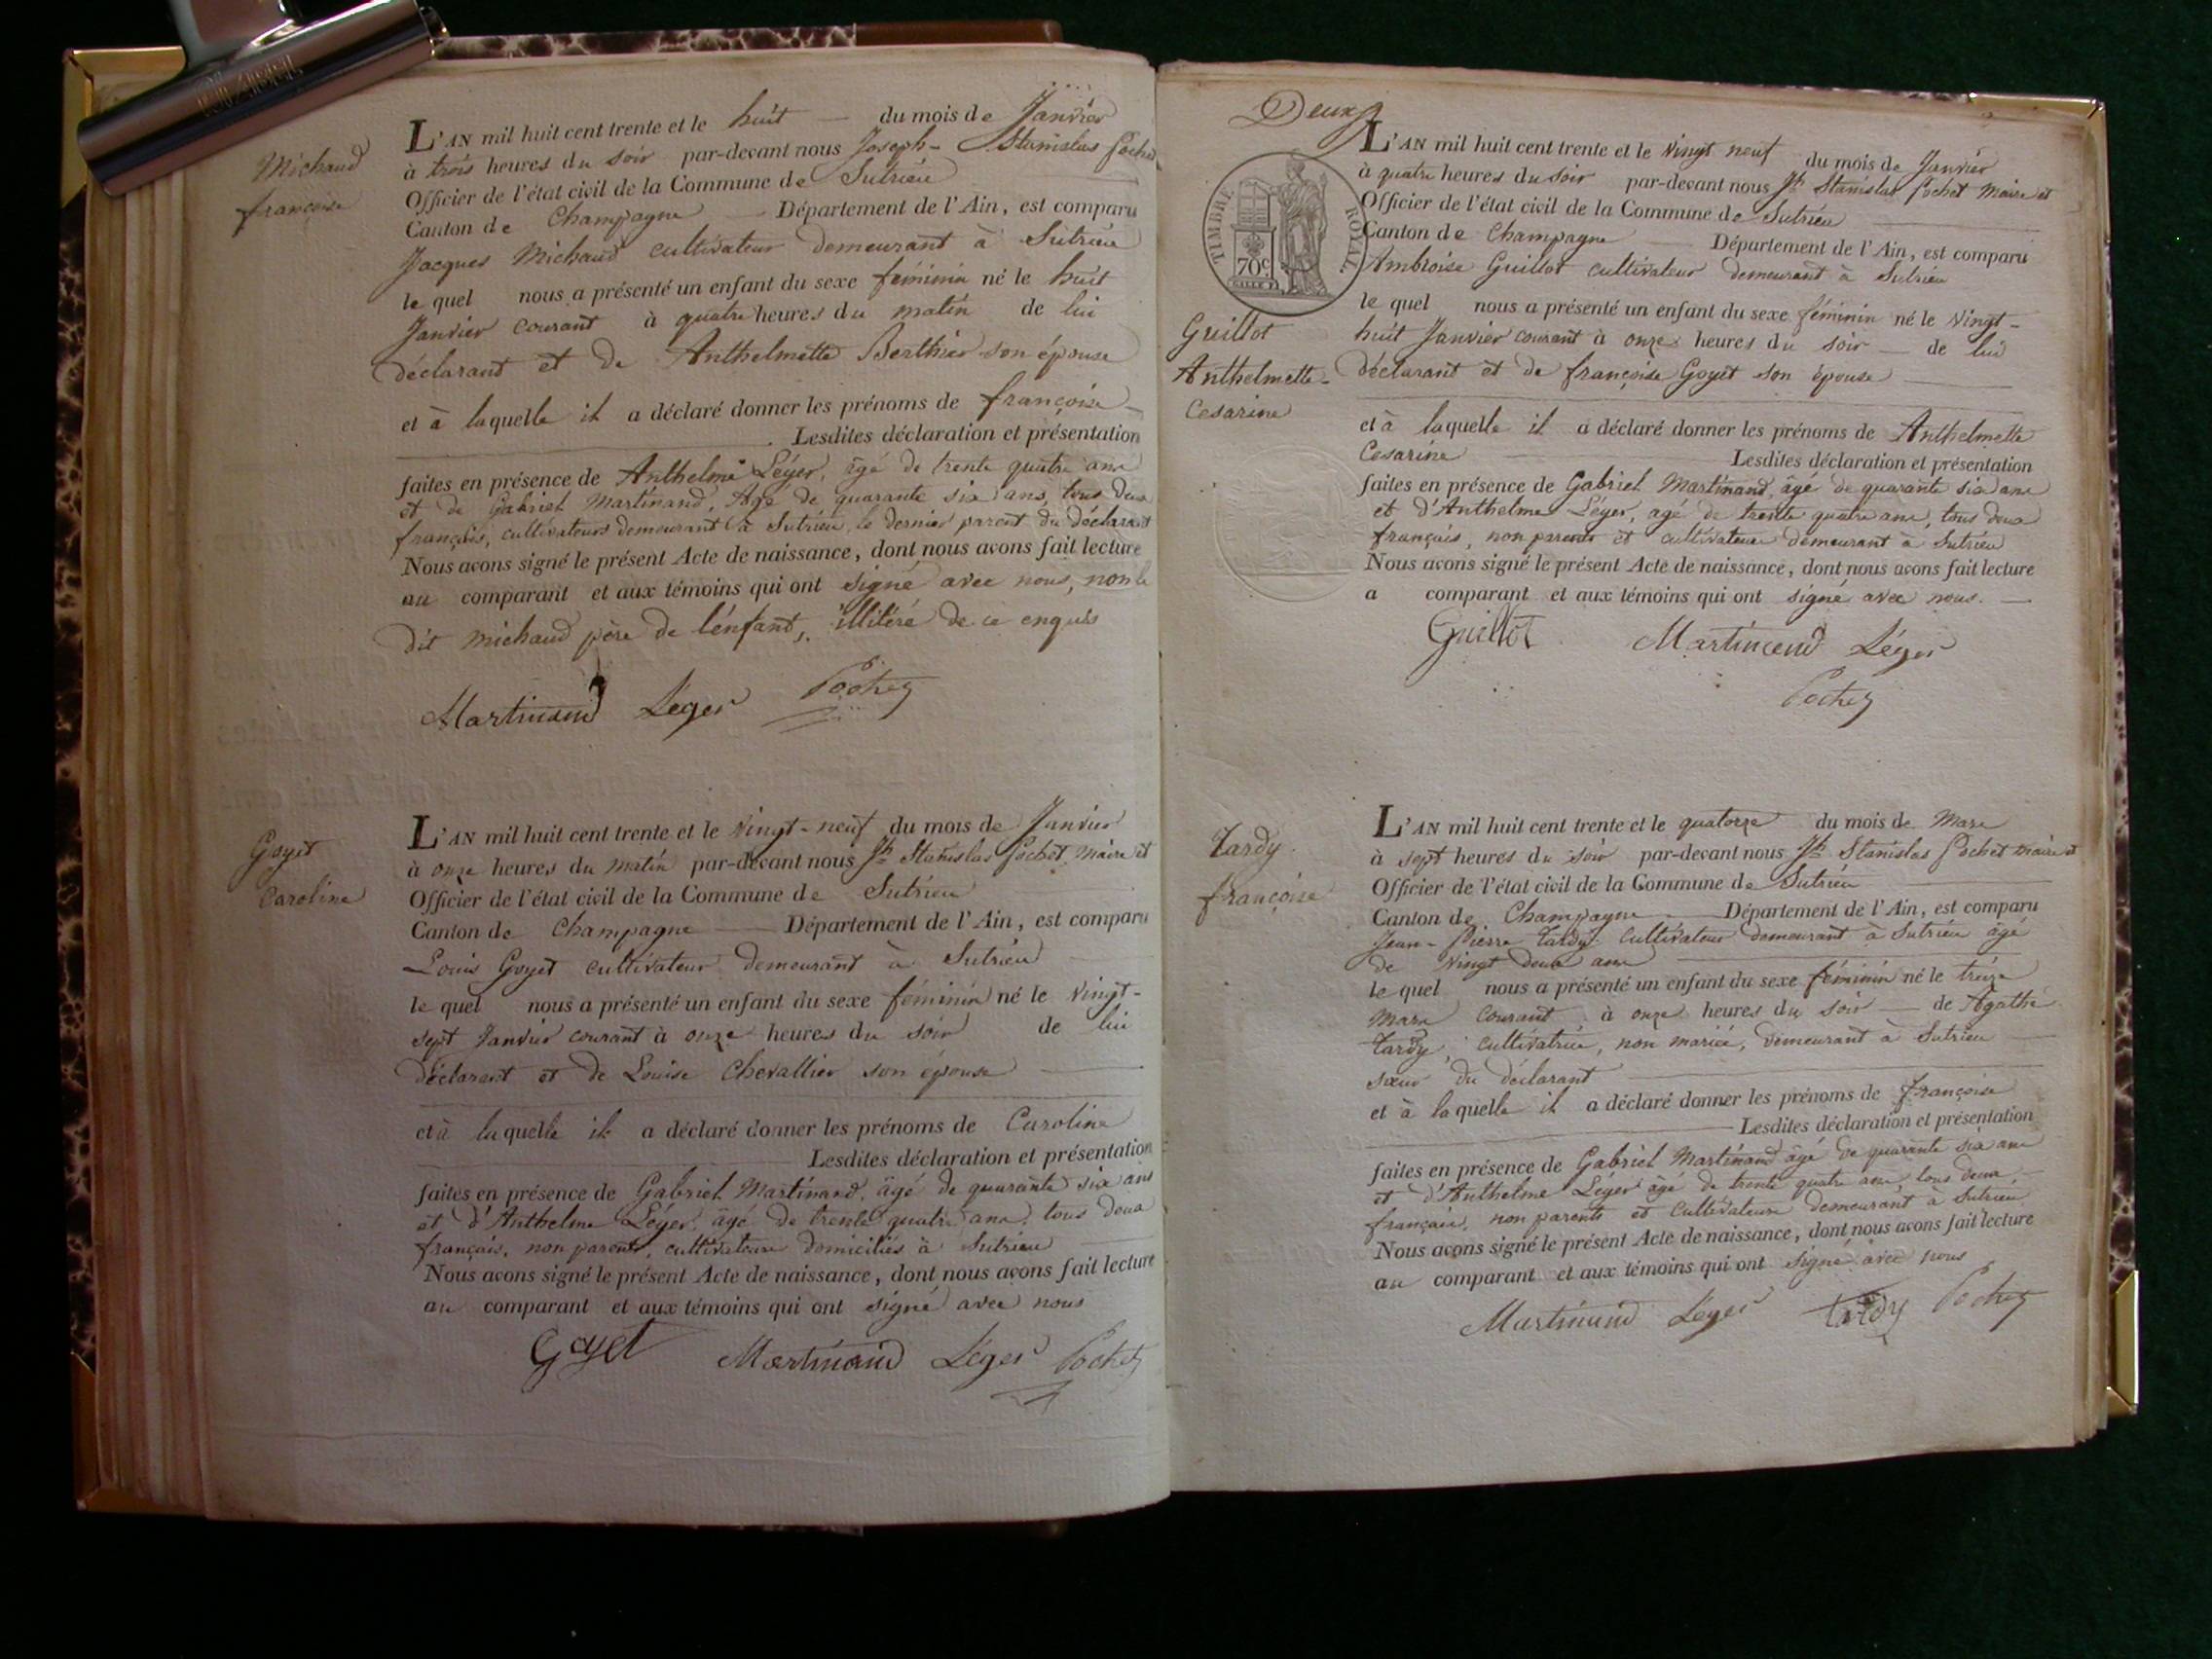 Michaud
françoise
L'AN mil huit cent trente et le huit du mois de Janvier
à trois heures du soir par-devant nous Joseph- Stanislas Pochet
Officier de l'état civil de la Commune de Sutrieu
Canton de Champagne Département de l'Ain, est comparu
Jacques Michaud cultivateur demeurant à Sutrieu
le quel nous a présenté un enfant du sexe féminin né le huit
Janvier courant à quatre heures du matin de lui
déclarant et de Anthelmette Berthier son épouse
et à laquelle il a déclaré donner les prénoms de françoise
Lesdites déclaration et présentation
faites en présence de Anthelme Léger, âgé de trente quatre ans
et de Gabriel Martinand, âgé de quarante six ans, tous deux
français, cultivateurs demeurant à Sutrieu, le dernier parent du déclarant
Nous avons signé le présent Acte de naissance, dont nous avons fait lecture
au comparant et aux témoins qui ont signé avec nous, non le
dit michaud père de l'enfant, illitéré de ce enquis
Martinand Léger Pochet
Goyet
Caroline
L'AN mil huit cent trente et le vingt-neuf du mois de Janvier
à onze heures du matin par-devant nous Jh Stanislas Pochet, maire et
Officier de l'état civil de la Commune de Sutrieu
Canton de Champagne Département de l'Ain, est comparu
Louis Goyet cultivateur demeurant à Sutrieu
le quel nous a présenté un enfant du sexe féminin né le vingt-
sept Janvier courant à onze heures du soir de lui
déclarant et de Louise Chevallier son épouse
et à laquelle il a déclaré donner les prénoms de Caroline
Lesdites déclaration et présentation
faites en présence de Gabriel Martinand, âgé de quarante six ans
et d'Anthelme Léger, âgé de trente quatre ans, tous deux
français, non parents, cultivateurs domiciliés à Sutrieu
Nous avons signé le présent Acte de naissance, dont nous avons fait lecture
au comparant et aux témoins qui ont signé avec nous
Goyet Martinand Léger Pochet
Deux
TIMBRE ROYAL
70c
Guillot
Anthelmette-
Cesarine
L'AN mil huit cent trente et le vingt neuf du mois de Janvier
à quatre heures du soir par-devant nous Jh Stanislas Pochet maire et
Officier de l'état civil de la Commune de Sutrieu
Canton de Champagne Département de l'Ain, est comparu
Ambroise Guillot cultivateur demeurant à Sutrieu
le quel nous a présenté un enfant du sexe féminin né le vingt-
huit Janvier courant à onze heures du soir de lui
déclarant et de françoise Goyet son épouse
et à laquelle il a déclaré donner les prénoms de Anthelmette
Cesarine Lesdites déclaration et présentation
faites en présence de Gabriel Martinand, âgé de quarante six ans
et d'Anthelme Léger, agé de trente quatre ans, tous deux
français, non parents et cultivateurs demeurant à Sutrieu
Nous avons signé le présent Acte de naissance, dont nous avons fait lecture
a comparant et aux témoins qui ont signé avec nous.
Guillot Martinand Léger
Pochet
Tardy
françoise
L'AN mil huit cent trente et le quatorze du mois de Mars
à sept heures du soir par-devant nous Jh Stanislas Pochet maire et
Officier de l'état civil de la Commune de Sutrieu
Canton de Champagne Département de l'Ain, est comparu
Jean-Pierre Tardy cultivateur demeurant à Sutrieu âgé
de vingt deux ans
le quel nous a présenté un enfant du sexe féminin né le treize
Mars courant à onze heures du soir de Agathe
Tardy, cultivatrice, non mariée, demeurant à Sutrieu
sœur du déclarant
et à laquelle il a déclaré donner les prénoms de françoise
Lesdites déclaration et présentation
faites en présence de Gabriel Martinand âgé de quarante six ans
et d'Anthelme Léger âgé de trente quatre ans, tous deux
français, non parents et cultivateurs demeurant à Sutrieu
Nous avons signé le présent Acte de naissance, dont nous avons fait lecture
au comparant et aux témoins qui ont signé avec nous
Martinand Léger Tardy Pochet